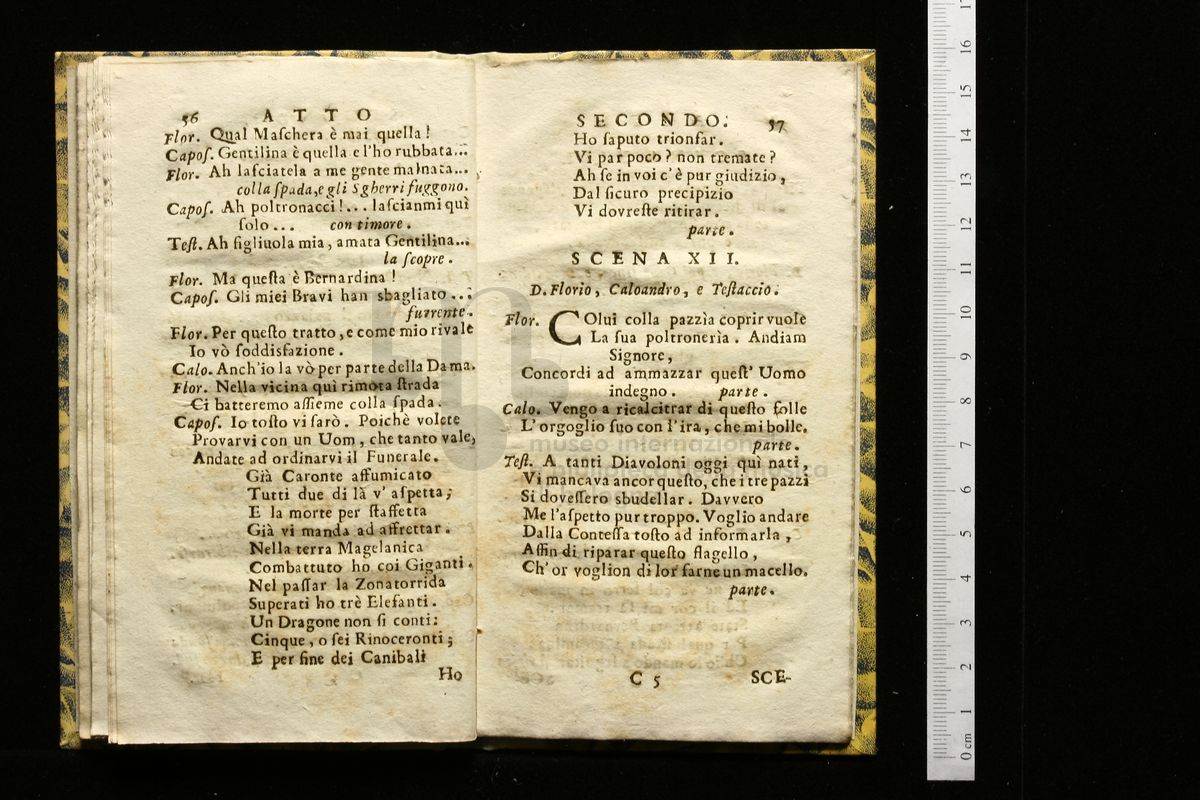 56 ATTO
Flor. Qual Maſchera è mai quella!
Capoſ. Gentilina è quella e l'ho rubbata...
Flor. Ah laſciatela a me gente malnata...
colla ſpada, e gli Sgherri fuggono.
Capoſ. Ah poltronacci!... laſcianmi quì
ſolo... con timore.
Teſt. Ah figliuola mia, amata Gentilina...
la ſcopre.
Flor. Ma queſta è Bernardina!
Capoſ. Gli miei Bravi han sbagliato...
furrente.
Flor. Per queſto tratto, e come mio rivale
Io vò ſoddisfazione.
Calo. Anch'io la vò per parte della Dama.
Flor. Nella vicina quì rimota ſtrada
Ci batteremo aſſieme colla ſpada.
Capoſ. Io toſto vi ſarò. Poichè volete
Provarvi con un Uom, che tanto vale,
Andate ad ordinarvi il Funerale.
Già Caronte affumicato
Tutti due di là v' aſpetta;
E la morte per ſtaffetta
Già vi manda ad affrettar.
Nella terra Magelanica
Combattuto ho coi Giganti.
Nel paſſar la Zonatorrida
Superati ho trè Elefanti.
Un Dragone non ſi conti:
Cinque, o ſei Rinoceronti;
E per fine dei Canibali
Ho
SECONDO. 57
Ho ſaputo trionfar.
Vi par poco? non tremate?
Ah ſe in voi c'è pur giudizio,
Dal ſicuro precipizio
Vi dovreſte ritirar.
parte.
SCENA XII.
D. Florio, Caloandro, e Teſtaccio.
Flor. COlui colla pazzìa coprir vuole
La ſua poltronerìa. Andiam
Signore,
Concordi ad ammazzar queſt' Uomo
indegno. parte.
Calo. Vengo a ricalcitrar di queſto folle
L' orgoglio ſuo con l'ira, che mi bolle.
parte.
Teſt. A tanti Diavoloni oggi quì nati,
Vi mancava ancor queſto, che i tre pazzi
Si doveſſero sbudellar. Davvero
Me l'aſpetto pur troppo. Voglio andare
Dalla Conteſſa toſto ad informarla,
Affin di riparar queſto flagello,
Ch' or voglion di lor farne un macello.
parte.
C 5 SCE-
museo internazionale
e biblioteca della musica
0 cm 1 2 3 4 5 6 7 8 9 10 11 12 13 14 15 16 17